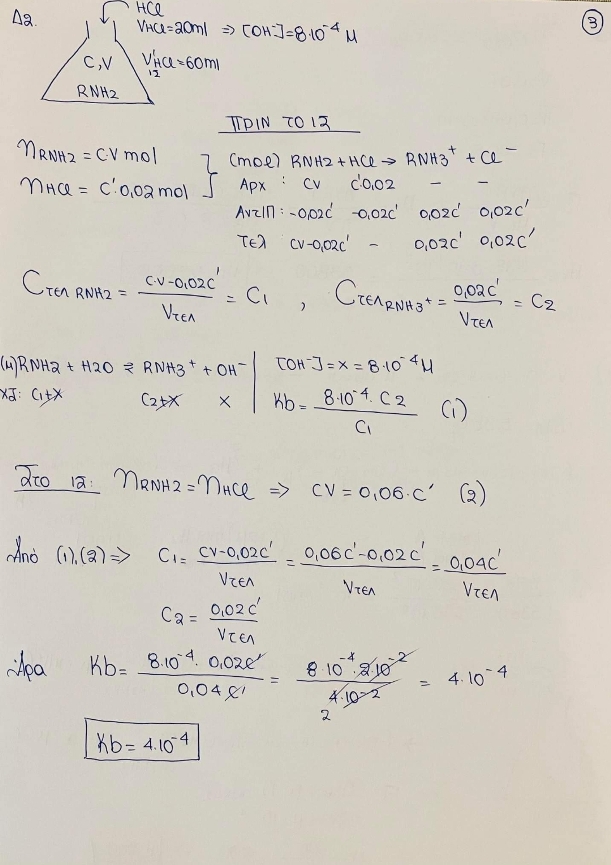 Δ2.
HCl
VHCl=20ml => [OH-]=8·10⁻⁴ M
③
C,V
RNH2
V'HCl=60ml
ΙΣ
ΠΡΙΝ ΤΟ ΙΣ
nRNH2 = C·V mol
nHCl = C'·0,02 mol
(mol) RNH2 + HCl → RNH3⁺ + Cl⁻
Αρχ : CV C'·0,02 – –
Αντ/Π : -0,02C' -0,02C' 0,02C' 0,02C'
Τελ CV-0,02C' – 0,02C' 0,02C'
Cτελ RNH2 = C·V-0,02C' / Vτελ = C1 , CτελRNH3⁺ = 0,02C' / Vτελ = C2
(M) RNH2 + H2O ⇌ RNH3⁺ + OH⁻
ΧΙ: C1±x C2±x x
[OH⁻]=x=8·10⁻⁴M
Kb = 8·10⁻⁴·C2 / C1 (1)
Στο ΙΣ: nRNH2 = nHCl => CV = 0,06·C' (2)
Από (1),(2) => C1 = CV-0,02C' / Vτελ = 0,06C'-0,02C' / Vτελ = 0,04C' / Vτελ
C2 = 0,02C' / Vτελ
Άρα Kb = 8·10⁻⁴·0,02C' / 0,04C' = 8·10⁻⁴·2·10⁻² / 4·10⁻² = 4·10⁻⁴
2
Kb = 4·10⁻⁴